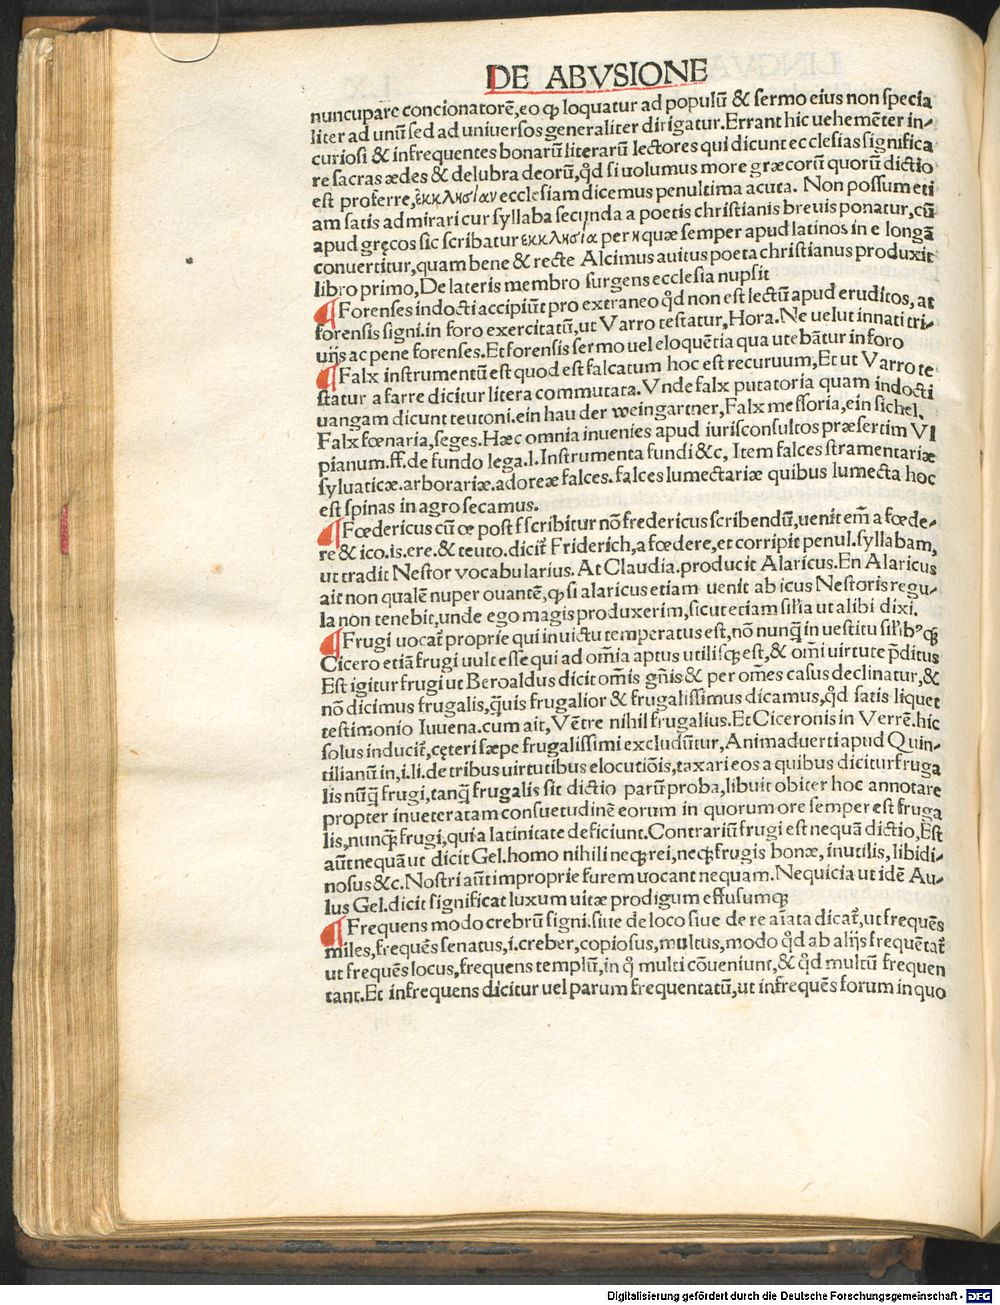 DE ABVSIONE
nuncupare concionatorē,eo ꝙ loquatur ad populū & sermo eius non specia
liter ad unū sed ad uniuersos generaliter dirigatur.Errant hic uehemēter in-
curiosi & infrequentes bonarū literarū lectores qui dicunt ecclesias significa
re sacras ædes & delubra deorū,qd̄ si uolumus more græcorū quorū dictio
est proferre,ἐκκλησίαν ecclesiam dicemus penultima acuta. Non possum eti
am satis admirari cur syllaba secunda a poetis christianis breuis ponatur,cū
apud gręcos sic scribatur εκκλησία per η quæ semper apud latinos in e longā
conuertitur,quam bene & recte Alcimus auitus poeta christianus produxit
libro primo,De lateris membro surgens ecclesia nupsit
¶ Forenses indocti accipiūt pro extraneo qd̄ non est lectū apud eruditos, at
forensis signi.in foro exercitatū,ut Varro testatur,Hora.Ne uelut innati tri-
uijs ac pene forenses.Et forensis sermo uel eloquētia qua utebātur in foro
¶ Falx instrumentū est quod est falcatum hoc est recuruum,Et ut Varro te
statur a farre dicitur litera commutata.Vnde falx putatoria quam indocti
uangam dicunt teutoni.ein hau der weingartner,Falx messoria,ein sichel.
Falx fœnaria,seges.Hæc omnia inuenies apud iurisconsultos præsertim Vl
pianum.ff.de fundo lega.l.Instrumenta fundi &c, Item falces stramentariæ
syluaticæ.arborariæ.adoreæ falces.falces lumectariæ quibus lumecta hoc
est spinas in agro secamus.
¶ Fœdericus cū œ post f scribitur nō fredericus scribendū,uenit em̄ a fœde-
re & ico.is.ere.& teuto.dicit̄ Friderich,a fœdere,et corripit penul.syllabam,
ut tradit Nestor vocabularius.At Claudia.producit Alaricus.En Alaricus
ait non qualē nuper ouantē,ꝙ si alaricus etiam uenit ab icus Nestoris regu-
la non tenebit,unde ego magis produxerim,sicut etiam sil̄ia ut alibi dixi.
¶ Frugi uocat̄ proprie qui in uictu temperatus est,nō nunq̄ in uestitu sil̄ibꝰqꝫ
Cicero etiā frugi uult esse qui ad om̄ia aptus utilisqꝫ est,& om̄i uirtute p̄ditus
Est igitur frugi ut Beroaldus dicit om̄is gn̄is & per om̄es casus declinatur,&
nō dicimus frugalis,q̄uis frugalior & frugalissimus dicamus,qd̄ satis liquet
testimonio Iuuena.cum ait, Vētre nihil frugalius.Et Ciceronis in Verrē.hic
solus inducit̄,cęteri sæpe frugalissimi excludūtur,Animaduerti apud Quin-
tilianū in,i.li.de tribus uirtutibus elocutiōis,taxari eos a quibus dicitur fruga
lis nūq̄ frugi,tanq̄ frugalis sit dictio parū proba,libuit obiter hoc annotare
propter inueteratam consuetudinē eorum in quorum ore semper est fruga
lis,nunq̄ frugi,quia latinitate deficiunt.Contrariū frugi est nequā dictio,Est
aūt nequā ut dicit Gel.homo nihili neqꝫ rei,neqꝫ frugis bonæ, inutilis,libidi-
nosus &c.Nostri aūt improprie furem uocant nequam.Nequicia ut idē Au-
lus Gel.dicit significat luxum uitæ prodigum effusumqꝫ
¶ Frequens modo crebrū signi.siue de loco siue de re aīata dicat̄,ut frequēs
miles,frequēs senatus,i.creber,copiosus,multus,modo qd̄ ab alijs frequētat̄
ut frequēs locus,frequens templū,in q̊ multi cōueniunt,& qd̄ multū frequen
tant.Et infrequens dicitur uel parum frequentatū,ut infrequēs forum in quo
Digitalisierung gefördert durch die Deutsche Forschungsgemeinschaft - DFG